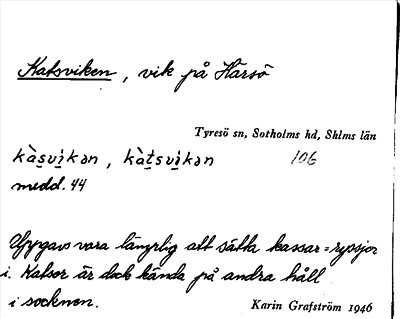 Katsviken, vik på Härsö
Tyresö sn, Sotholms hd, Shlms län
kàs̱vi̱kən, kàts̱vi̱kən 106
medd. 44
Uppgavs vara lämplig att sätta kassar = ryssjor
i. Katsor är dock kända på andra håll
i socknen.
Karin Grafström 1946